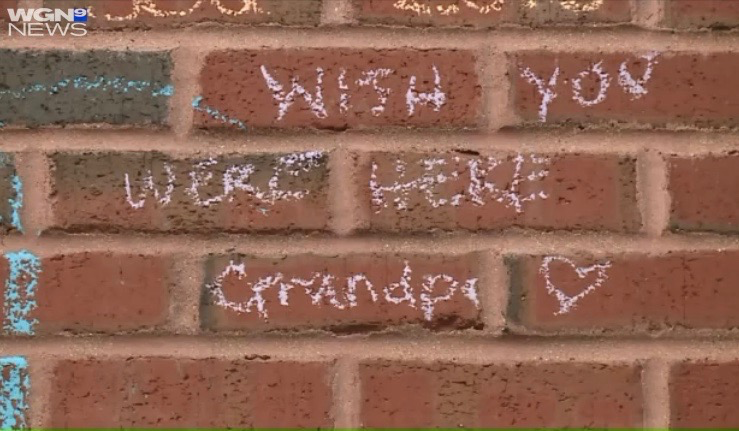 WGN 9
NEWS
WISH YOU
WERE HERE
Grandpa ♡